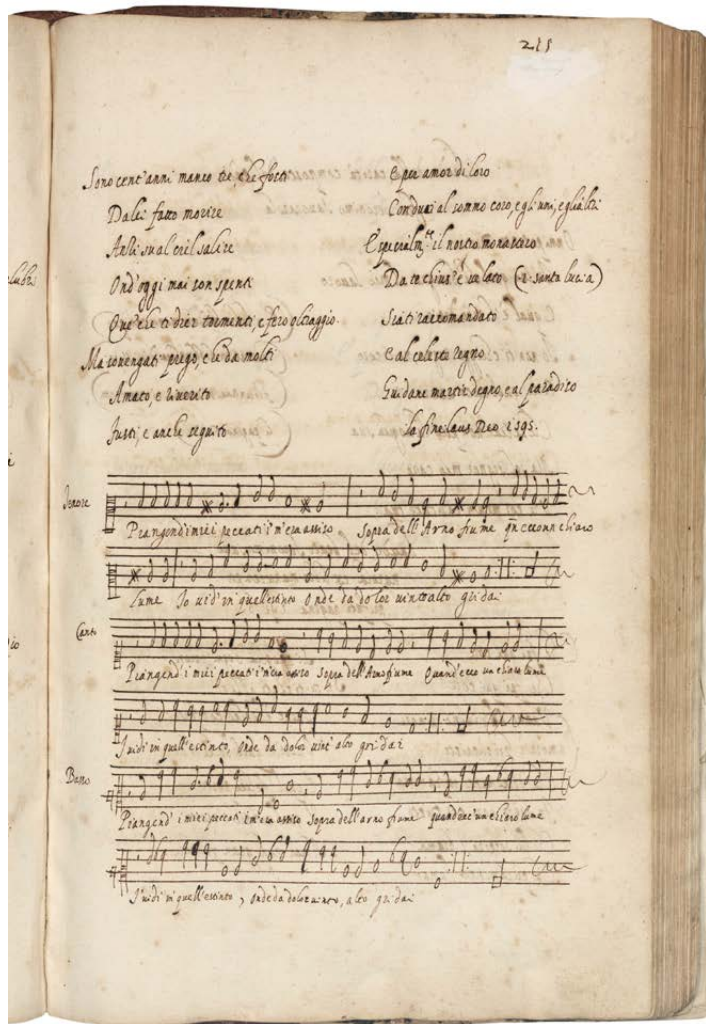 215
Sono cent'anni manco tre, che fosti
Da lei fatto morire
Anzi su al ciel salire
Ond'oggi mai son spenti
Que' che ti dier tormenti, e fero oltraggio.
Ma prego, che da molti
Amato, e riverito
Fusti, e anche seguito
E per amor di loro
Conduci al sommo coro, e gli uni, e gli altri
E specialm.te il nostro monastero
Da te e velato (santa lucia)
Siati raccomandato
E al celeste regno
Guidane martir degno, e al paradiso
la fine laus Deo 1595.
Tenore
Piangend i miei peccati i' m'era assiso Sopra dell'Arno fiume un chiaro
lume Io vid' in quell'estinto Onde da dolor vinto alto gridai
Canto
Piangend' i miei peccati i' m'era assiso Sopra dell'Arno fiume Quand'ecco un chiaro lume
I' vidi in quell'estinto, onde da dolor vint' alto gridai
Basso
Piangend' i miei peccati i m'era assiso Sopra dell'arno fiume quand'ecc'un chiaro lume
I' vidi in quell'estinto, onde da dolor vinto, alto gridai